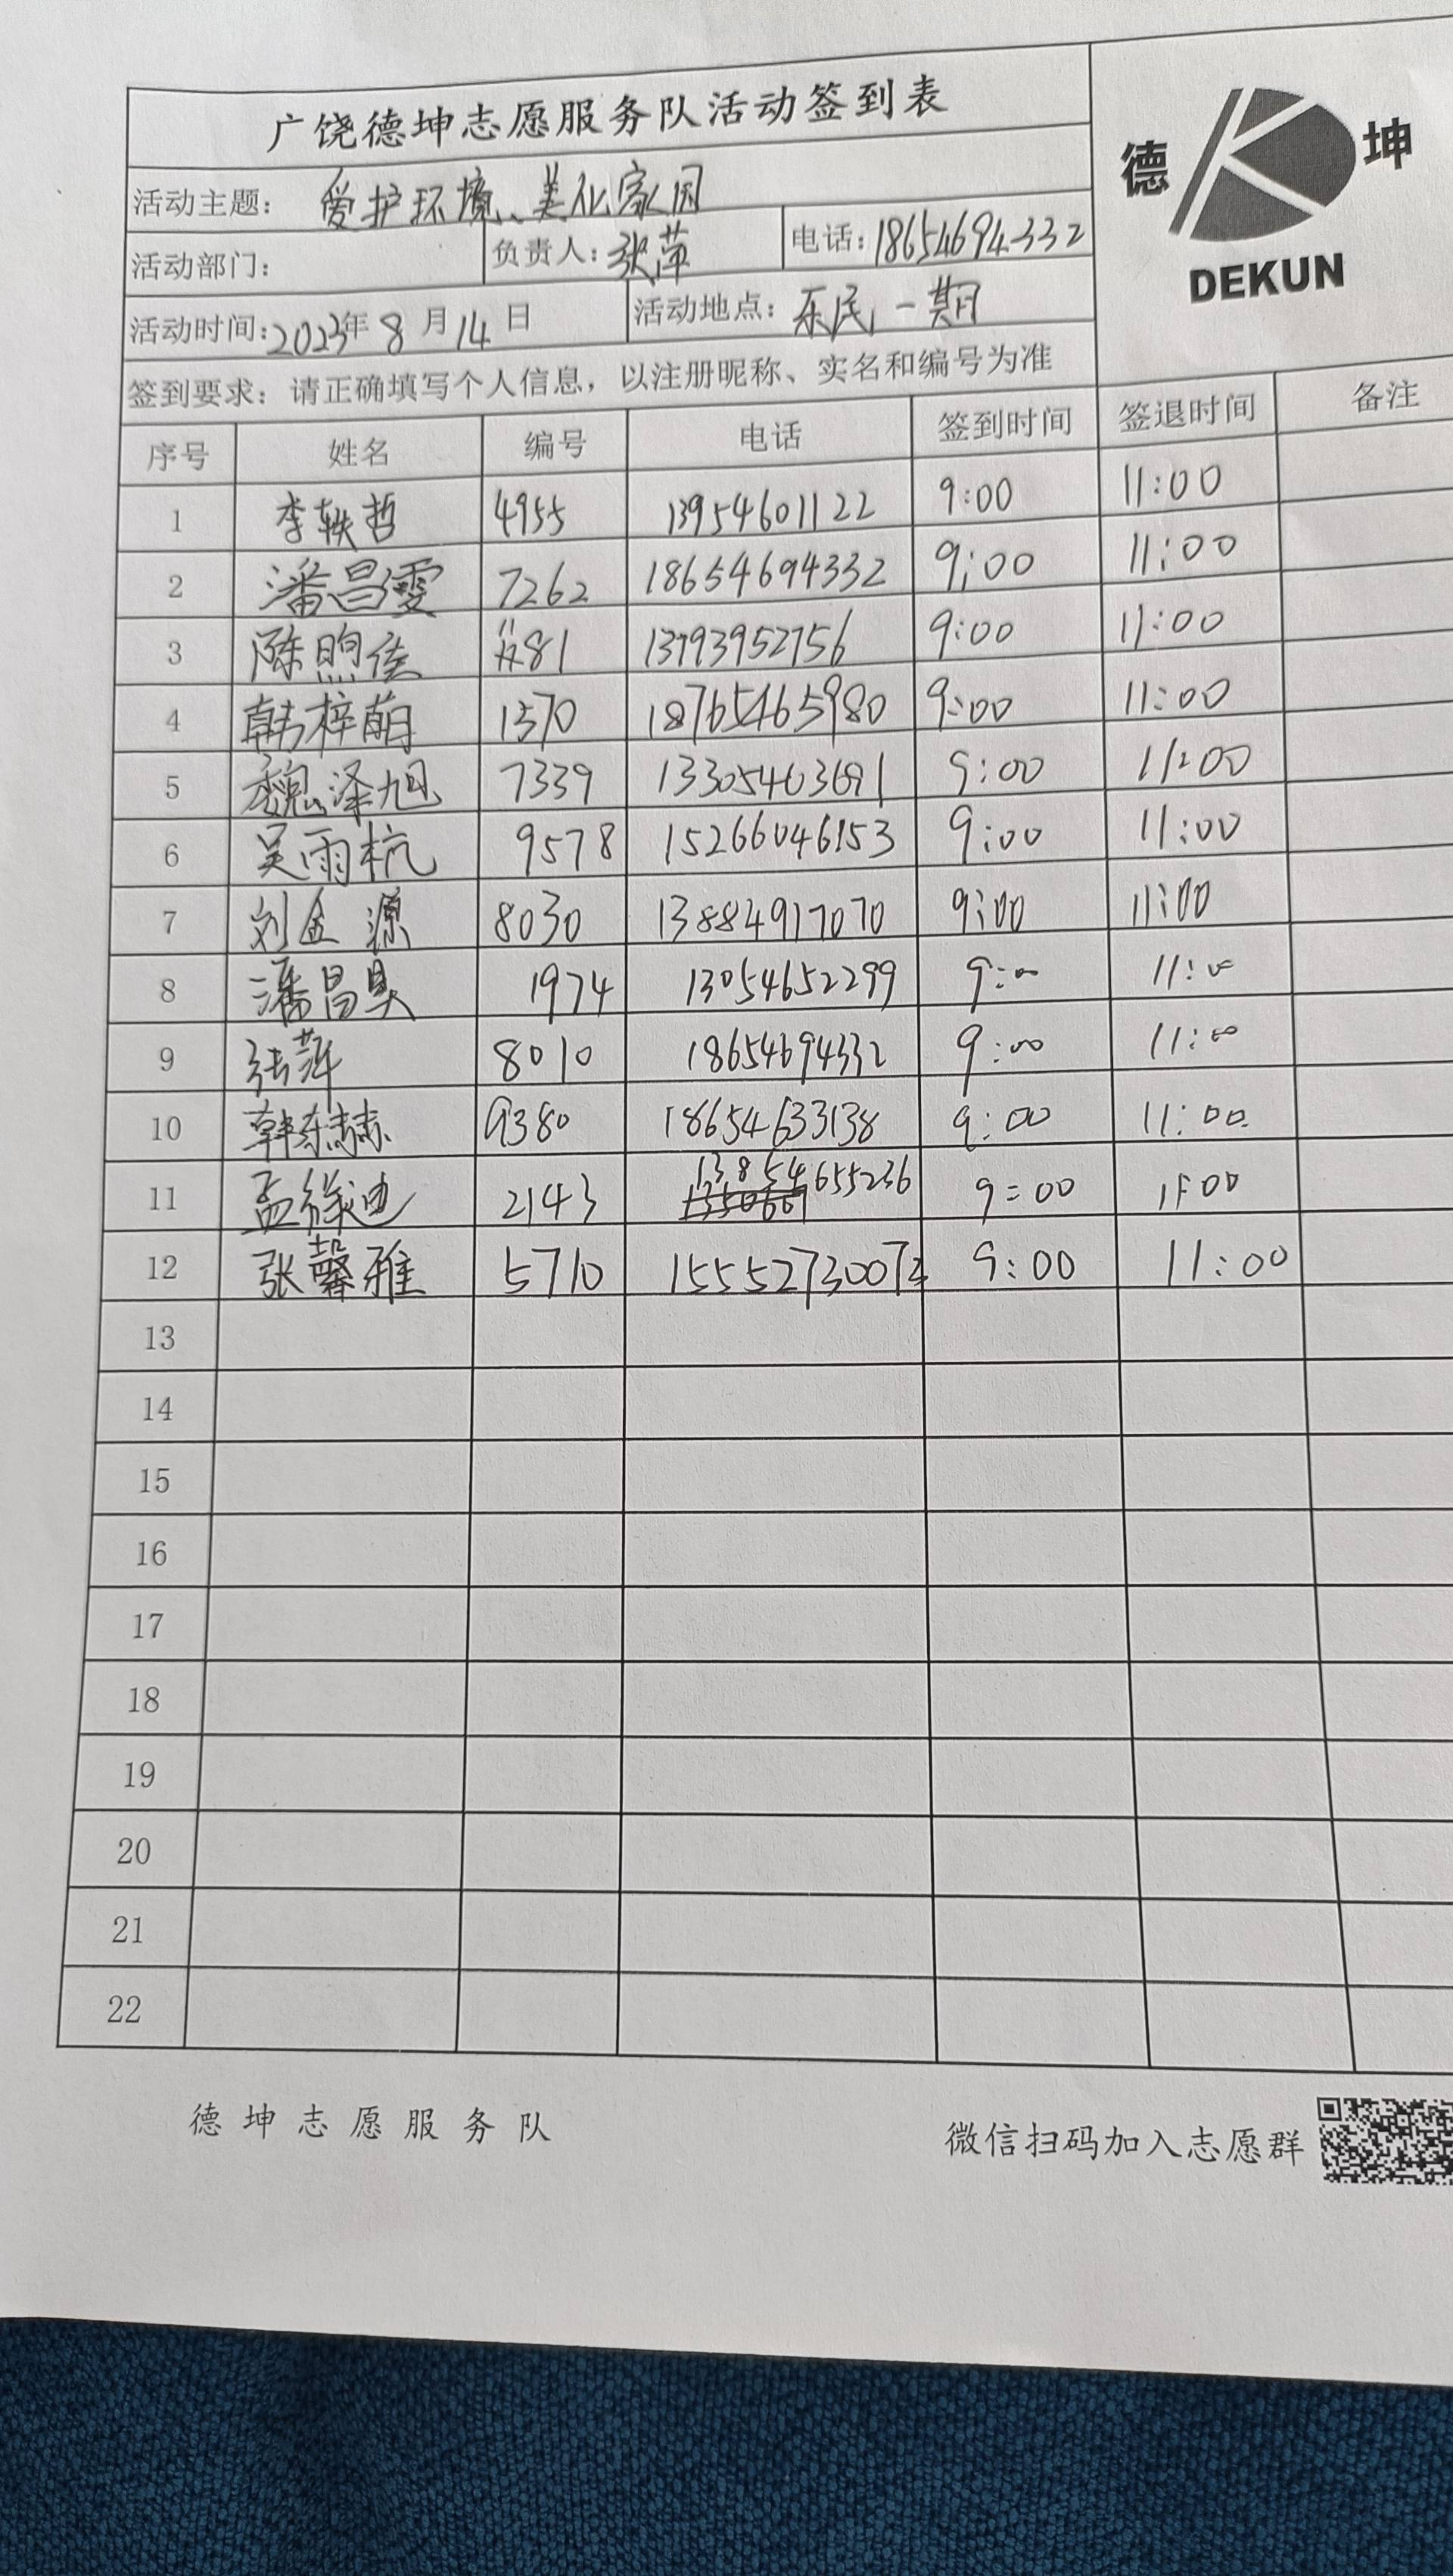 广饶德坤志愿服务队活动签到表
德 坤
DEKUN
活动主题： 爱护环境、美化家园
活动部门： 负责人：张萍 电话：18654694332
活动时间：2023年 8 月 14 日 活动地点：乐民一期
签到要求：请正确填写个人信息，以注册昵称、实名和编号为准
序号 姓名 编号 电话 签到时间 签退时间 备注
1 李轶哲 4955 13954601122 9:00 11:00
2 潘昌雯 7262 18654694332 9:00 11:00
3 陈煦佳 1181 13793952756 9:00 11:00
4 韩梓萌 1570 18765465980 9:00 11:00
5 魏泽旭 7339 13305463691 9:00 11:00
6 吴雨杭 9578 15266046153 9:00 11:00
7 刘金源 8030 13884917070 9:00 11:00
8 潘昌昊 1974 13054652299 9:00 11:00
9 张萍 8010 18654694332 9:00 11:00
10 韩东赫 9380 18654633138 9:00 11:00
11 孟徐迪 2143 13854655236 9:00 11:00
12 张馨雅 5710 1555273007 9:00 11:00
13
14
15
16
17
18
19
20
21
22
德坤志愿服务队 微信扫码加入志愿群